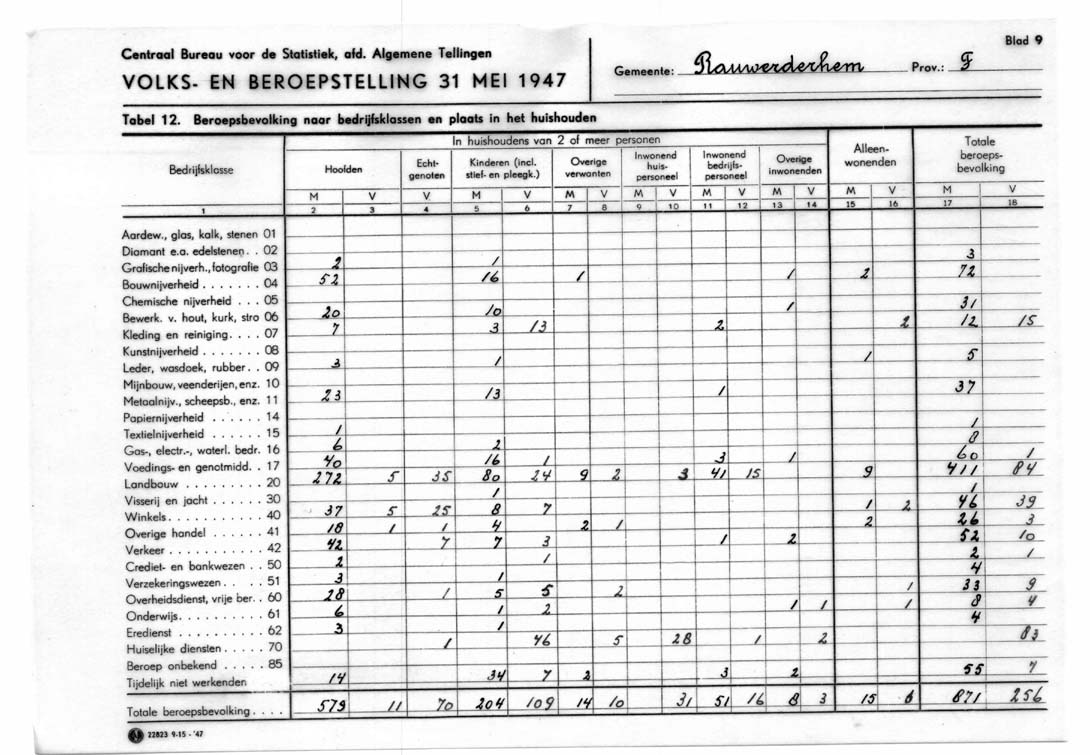 Centraal Bureau voor de Statistiek, afd. Algemene Tellingen
VOLKS- EN BEROEPSTELLING 31 MEI 1947
Gemeente: Rauwerderhem Prov.: F
Blad 9
Tabel 12. Beroepsbevolking naar bedrijfsklassen en plaats in het huishouden
In huishoudens van 2 of meer personen
Bedrijfsklasse
Hoofden
Echt-
genoten
Kinderen (incl.
stief- en pleegk.)
Overige
verwanten
Inwonend
huis-
personeel
Inwonend
bedrijfs-
personeel
Overige
inwonenden
Alleen-
wonenden
Totale
beroeps-
bevolking
M V V M V M V M V M V M V M V M V
1 2 3 4 5 6 7 8 9 10 11 12 13 14 15 16 17 18
Aardew., glas, kalk, stenen 01
Diamant e.a. edelstenen . . 02
Grafische nijverh., fotografie 03 2 1 3
Bouwnijverheid . . . . . . . 04 52 16 1 1 2 72
Chemische nijverheid . . . 05
Bewerk. v. hout, kurk, stro 06 20 10 1 31
Kleding en reiniging. . . . 07 7 3 13 2 2 12 15
Kunstnijverheid . . . . . . . 08
Leder, wasdoek, rubber. . 09 3 1 1 5
Mijnbouw, veenderijen, enz. 10
Metaalnijv., scheepsb., enz. 11 23 13 1 37
Papiernijverheid . . . . . . 14
Textielnijverheid . . . . . . 15 1 1
Gas-, electr.-, waterl. bedr. 16 6 2 8
Voedings- en genotmidd. . 17 40 16 1 3 1 60 1
Landbouw . . . . . . . . . 20 272 5 35 80 24 9 2 3 41 15 9 411 84
Visserij en jacht . . . . . . 30 1 1
Winkels . . . . . . . . . . . 40 37 5 25 8 7 1 2 46 39
Overige handel . . . . . . 41 18 1 1 4 2 1 2 26 3
Verkeer . . . . . . . . . . . 42 42 7 7 3 1 2 52 10
Crediet- en bankwezen . . 50 2 1 2 1
Verzekeringswezen . . . . 51 3 1 4
Overheidsdienst, vrije ber. . 60 28 1 5 5 2 1 33 9
Onderwijs. . . . . . . . . . 61 6 1 2 1 1 1 8 4
Eredienst . . . . . . . . . . 62 3 1 4
Huiselijke diensten . . . . . 70 1 46 5 28 1 2 83
Beroep onbekend . . . . . 85
Tijdelijk niet werkenden 14 34 7 2 3 2 55 7
Totale beroepsbevolking. . . . 579 11 70 204 109 14 10 31 51 16 8 3 15 6 871 256
22823 9-15 - '47